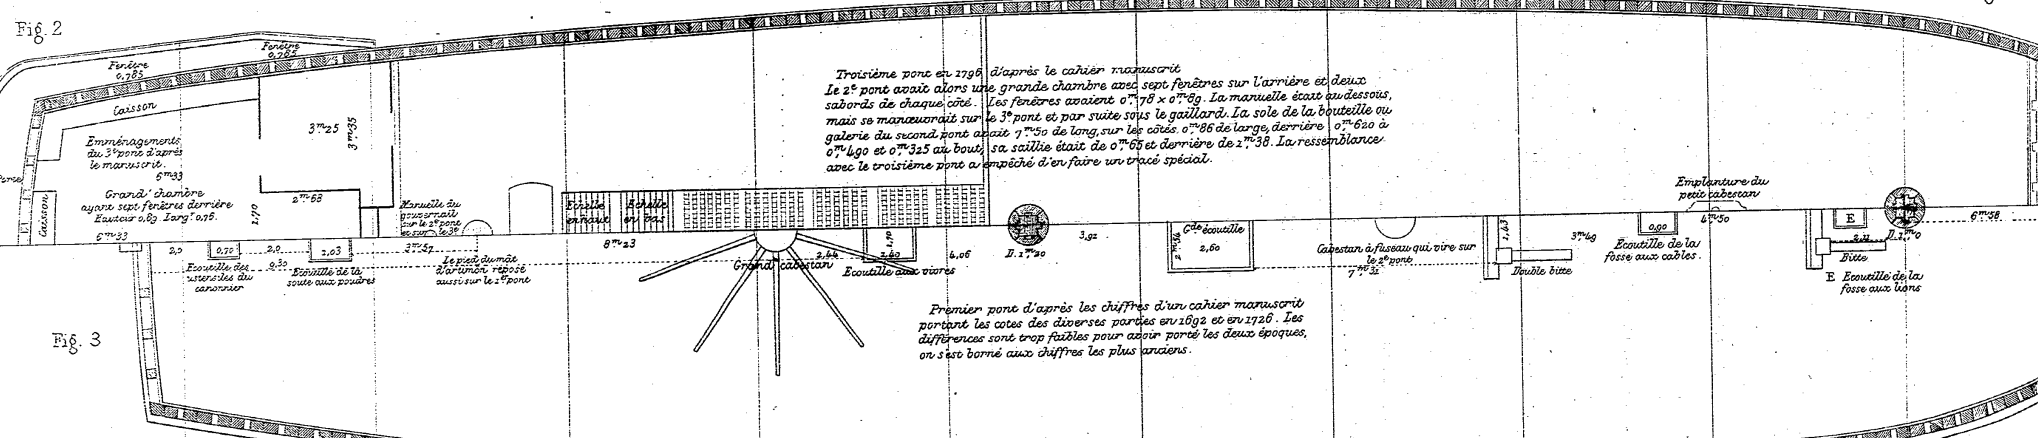 Fig. 2
Fenêtre
0,785
Fenêtre
0,785
Caisson
3m25
3m35
Emménagements
du 3e pont d'après
le manuscrit.
6m33
Grand' chambre
ayant sept fenêtres derrière
Hauteur 0,89. Largr 0,76.
Caisson
6m33
2m68
1,70
Manuelle du
gouvernail
sur le 2e pont
et sur le 3e
Echelle
en haut
Echelle
en bas
Troisième pont en 1796 d'après le cahier manuscrit
Le 2e pont avait alors une grande chambre avec sept fenêtres sur l'arrière et deux
sabords de chaque côté. Les fenêtres avaient 0m78 x 0m89. La manuelle était au dessous,
mais se manœuvrait sur le 3e pont et par suite sous le gaillard. La sole de la bouteille ou
galerie du second pont avait 7m50 de long, sur les côtés, 0m86 de large, derrière 0m620 à
0m490 et 0m325 au bout, sa saillie était de 0m65 et derrière de 1m38. La ressemblance
avec le troisième pont a empêché d'en faire un tracé spécial.
Emplanture du
petit cabestan
2,0
0,70
2,0
1,03
0,30
3m57
8m23
2,44
1,40
1,70
4,06
D. 1m20
3,92
2m54
Gde écoutille
2,60
7m31
1,43
3m49
0,90
4m50
E
2,11
D. 1m0
6m58
Ecoutille des
ustensiles du
canonnier
Ecoutille de la
soute aux poudres
Le pied du mât
d'artimon repose
aussi sur le 1er pont
Grand cabestan
Ecoutille aux vivres
Cabestan à fuseau qui vire sur
le 2e pont
Double bitte
Ecoutille de la
fosse aux cables.
Bitte
E Ecoutille de la
fosse aux lions
Premier pont d'après les chiffres d'un cahier manuscrit
portant les cotes des diverses parties en 1692 et en 1726. Les
différences sont trop faibles pour avoir porté les deux époques,
on s'est borné aux chiffres les plus anciens.
Fig. 3